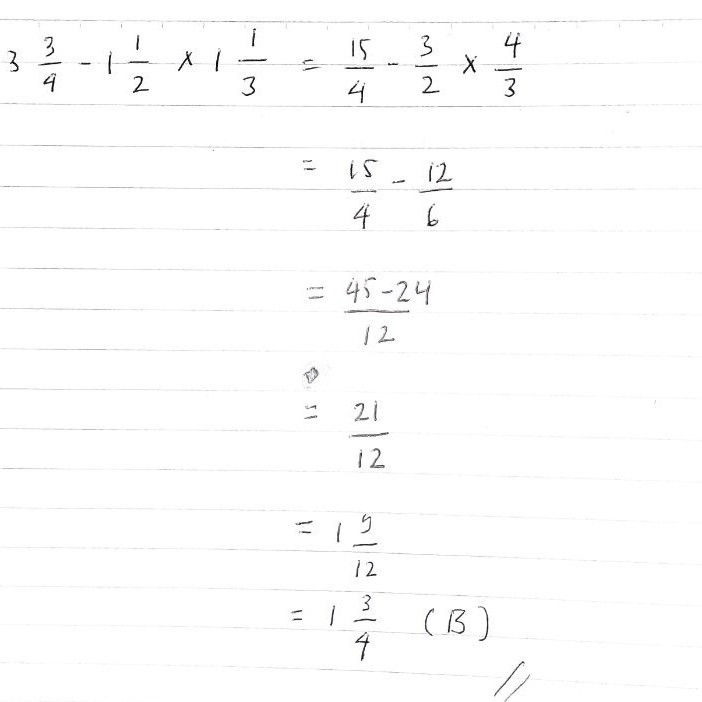 3 3/4 - 1 1/2 × 1 1/3 = 15/4 - 3/2 × 4/3
= 15/4 - 12/6
= 45-24/12
= 21/12
= 1 9/12
= 1 3/4 (B)